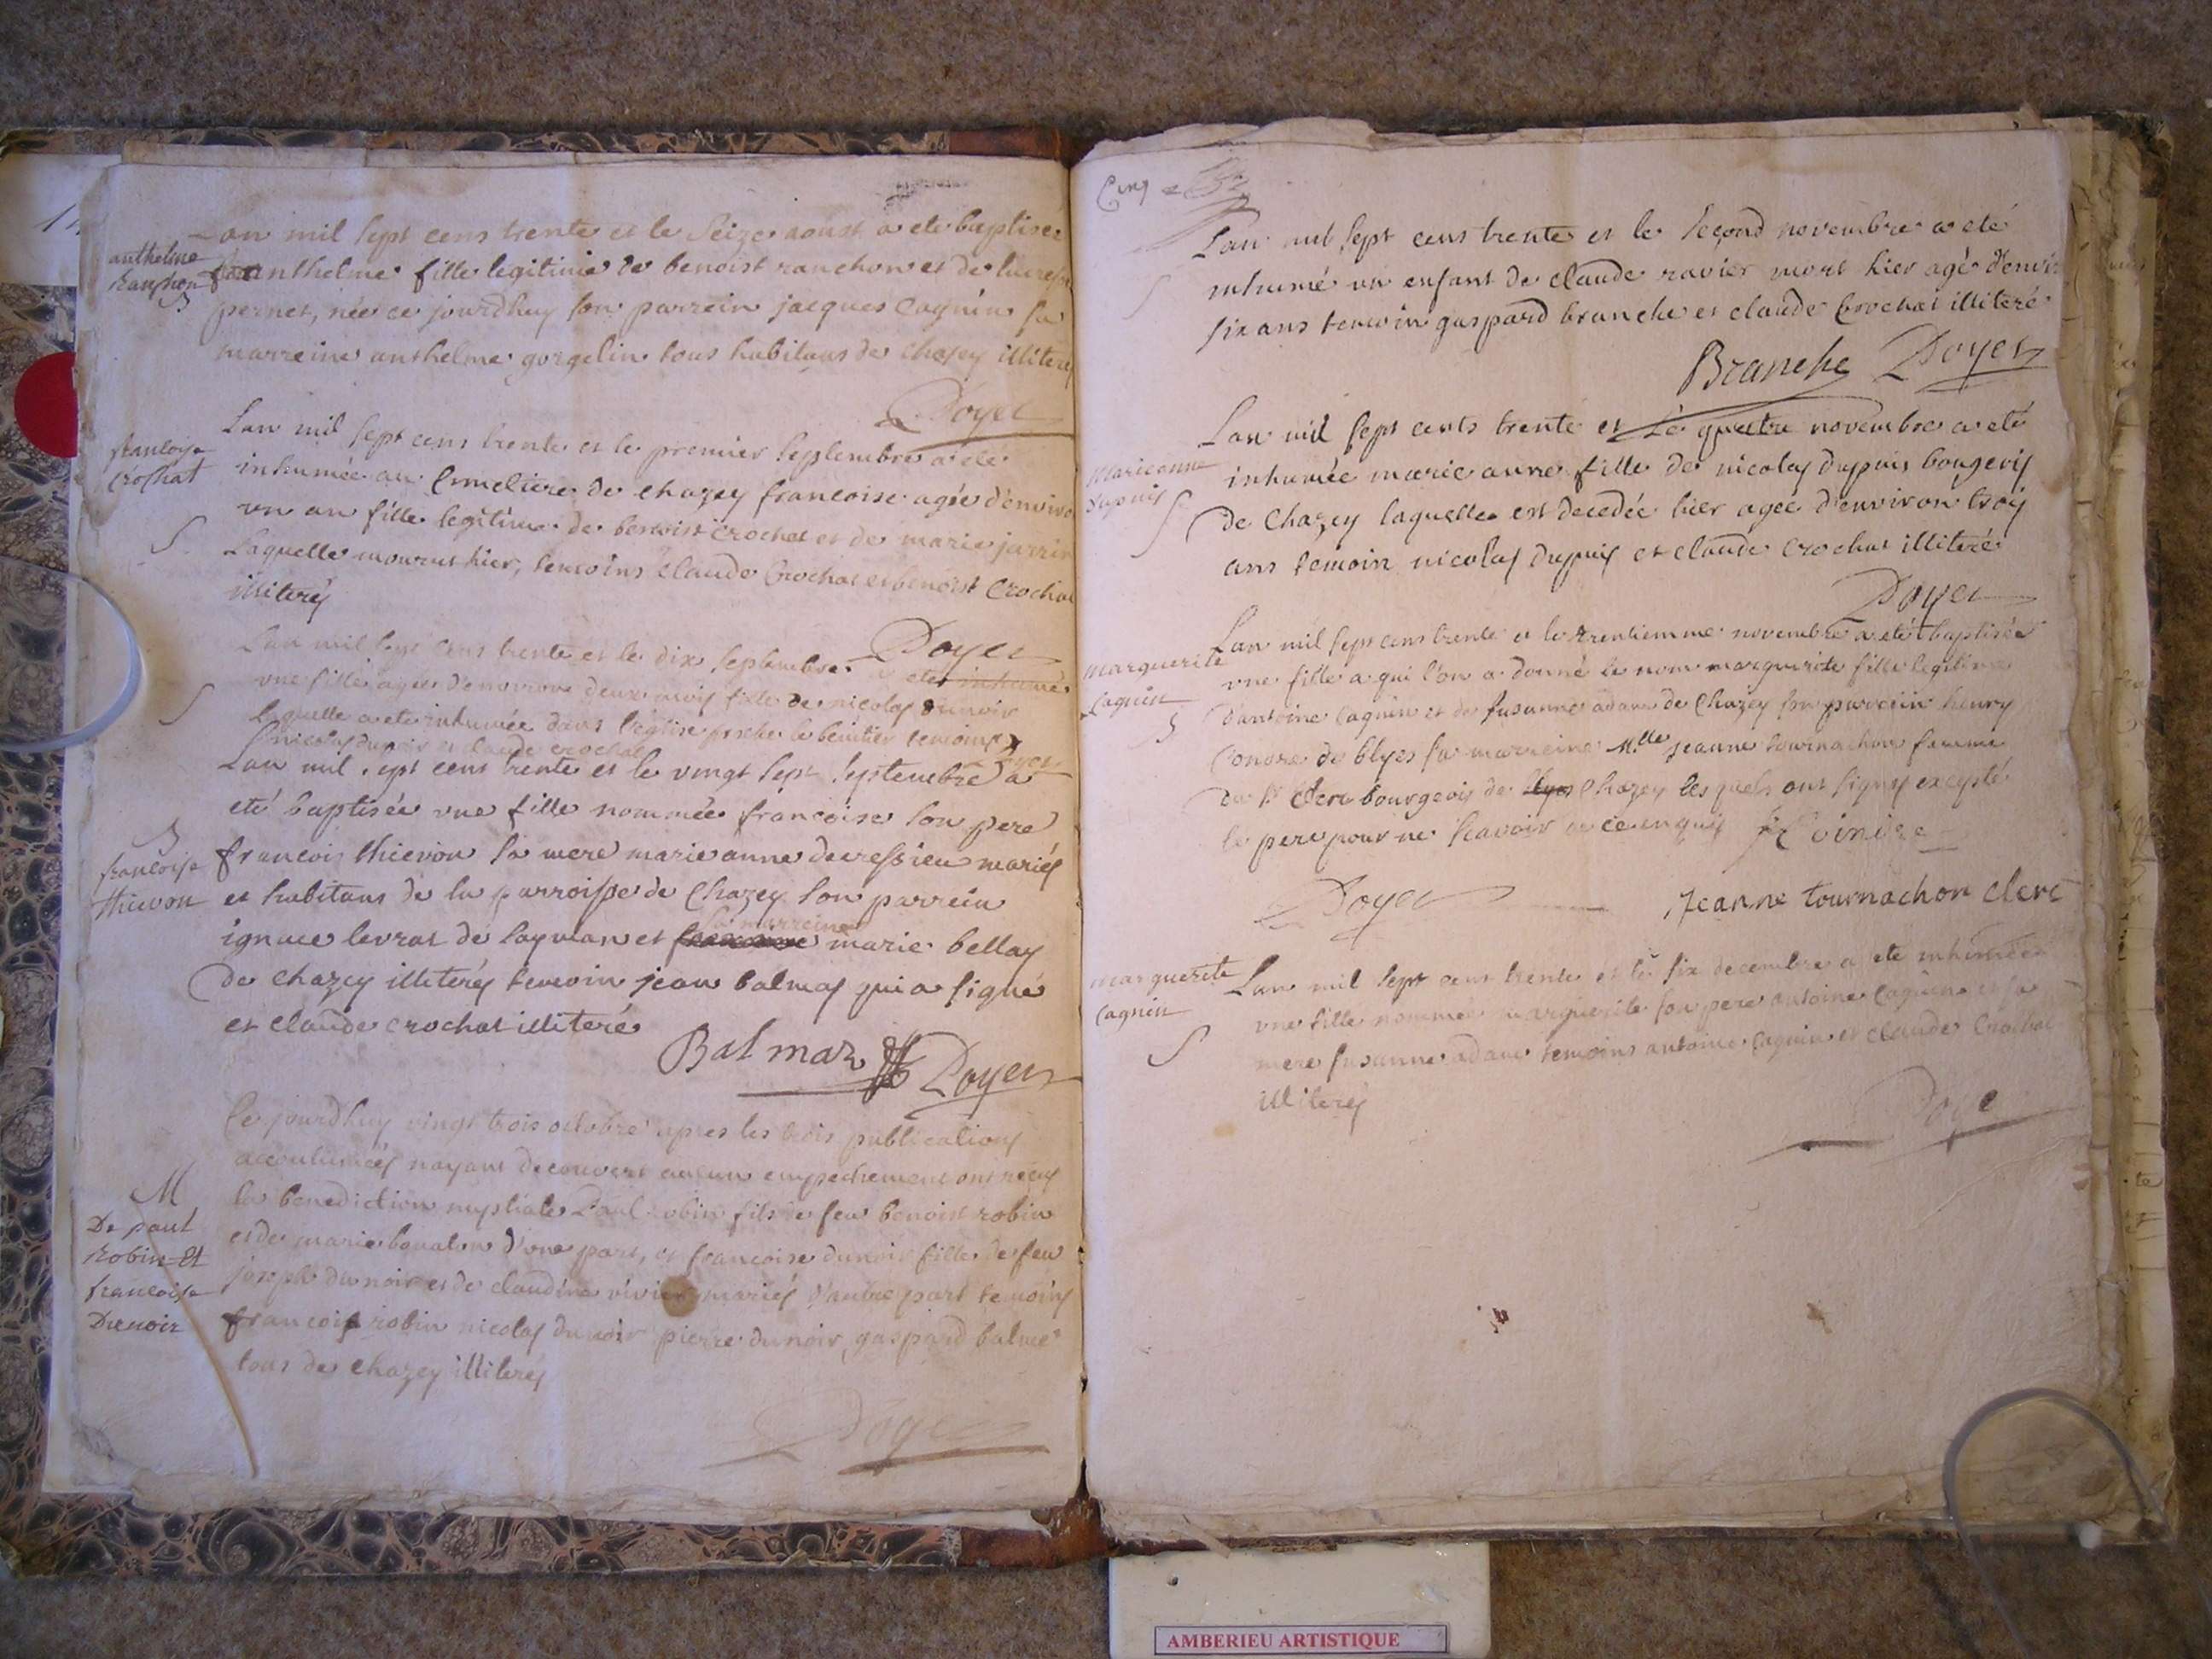 an mil sept cens trente et le seize aoust a ete baptisée
anthelme
ranchon
anthelme fille legitime de benoist ranchon et de
pernet, née ce jourdhuy son parrein jacques Cagnin sa
marreine anthelme gorgelin tous habitans de chazey illiterés
Doyer
Lan mil sept cens trente et le premier septembre a ete
francoise
crochat
inhumée au Cimetiere de chazey francoise agée d'enviro
un an fille legitime de benoist crochat et de marie jarrin
S
Laquelle mourut hier, temoins Claude Crochat et benoist Crochat
illiterés
Doyer
Lan mil sept cens trente et le dix septembre a eté inhumée
une fille agée d'environ deux mois fille de nicolas dunoir
S
laquelle a ete inhumée dans l'eglise proche le benitier temoins
nicolas dunoir et claude crochat
Doyer
Lan mil sept cens trente et le vingt sept septembre a
eté baptisée une fille nommée francoise son pere
francoise
thievon
francois thievon sa mere marie anne decressieu mariés
et habitans de la parroisse de Chazey son parrein
sa marreine
ignace levrat de et marie bellay
de chazey illiterés temoin jean balmas qui a signé
et claude crochat illiteré
Balmaz Doyer
Ce jourdhuy vingt trois octobre apres les trois publications
accoutumées nayant decouvert aucun empechement ont reçus
M
De paul
robin et
francoise
Dunoir
la benediction nuptiale Paul robin fils de feu benoist robin
et de marie d'une part, et francoise dunoir fille de feu
joseph dunoir et de claudine mariés d'autre part temoins
francois robin nicolas dunoir pierre dunoir, gaspard balme
tous de chazey illiterés
Doyer
Cinq
Lan mil sept cens trente et le second novembre a eté
inhumé un enfant de claude ravier mort hier agé d'envir
S
six ans temoin gaspard branche et claude Crochat illiteré
Branche Doyer
Lan mil sept cents trente et Le quatre novembre a eté
marieanne
dupuis
S
inhumée marie anne fille de nicolas dupuis bourgeois
de Chazey laquelle est decedée hier agée d'environ trois
ans temoin nicolas dupuis et claude crochat illiteré
Doyer
Lan mil sept cens trente et le trentiemme novembre a eté baptisée
marguerite
Cagnin
une fille a qui l'on a donné le nom marguerite fille legitime
d'antoine Cagnin et de susanne adam de Chazey son parrein henry
de blyes sa marreine Mlle jeanne tournachon femme
du Sr Clerc bourgeois de Chazey lesquels ont signés excepté
le pere pour ne scavoir de ce enquis
Doyer
Jeanne tournachon clerc
marguerite
Cagnin
S
Lan mil sept cens trente et le six decembre a ete inhumée
une fille nommée marguerite son pere antoine Cagnin et sa
mere susanne adam temoins antoine Cagnin et claude Crochat
illiterés
Doye
AMBERIEU ARTISTIQUE